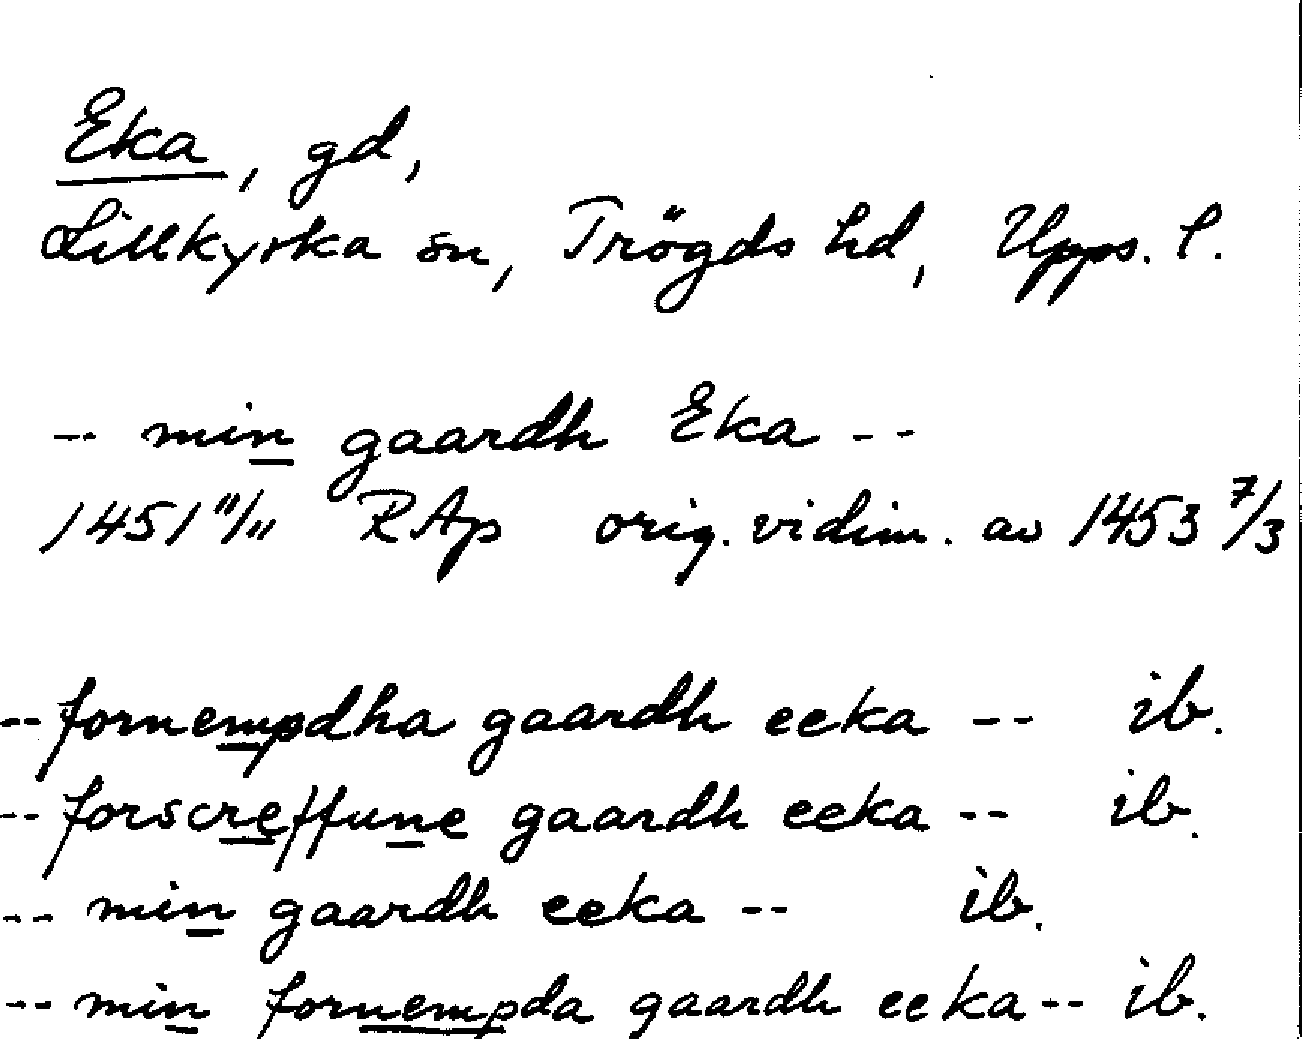 Eka, gd,
Lillkyrka sn, Trögds hd, Upps. l.
-- min gaardh Eka --
1451 11/11 RAp orig. vidim. av 1453 7/3
-- fornempdha gaardh eeka -- ib.
-- forscreffune gaardh eeka -- ib.
-- min gaardh eeka -- ib.
-- min fornempda gaardh eeka -- ib.